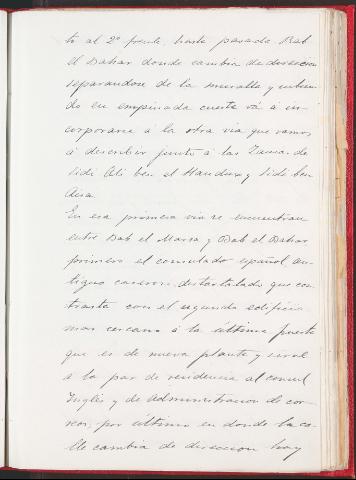 to al 2º frente, hasta pasada Bab
el Dahar donde cambia de direccion
separandose de la muralla y subien-
do en empinada cuesta vá á in-
corporarse á la otra via que vamos
á describir junto á las Zauias de
Sidi Ali ben el Hamdux y Sidi ben
Aisa.
En esa primera via se encuentran
entre Bab el Marsa y Bab el Dahar
primero el consulado español, an-
tiguo caseron destartalado que con-
trasta con el segundo edificio
mas cercano á la última puerta
que es de nueva planta y sirve
á la par de residencia al consul
Inglés y de Administracion de cor-
reos; por último en donde la ca-
lle cambia de direccion hay